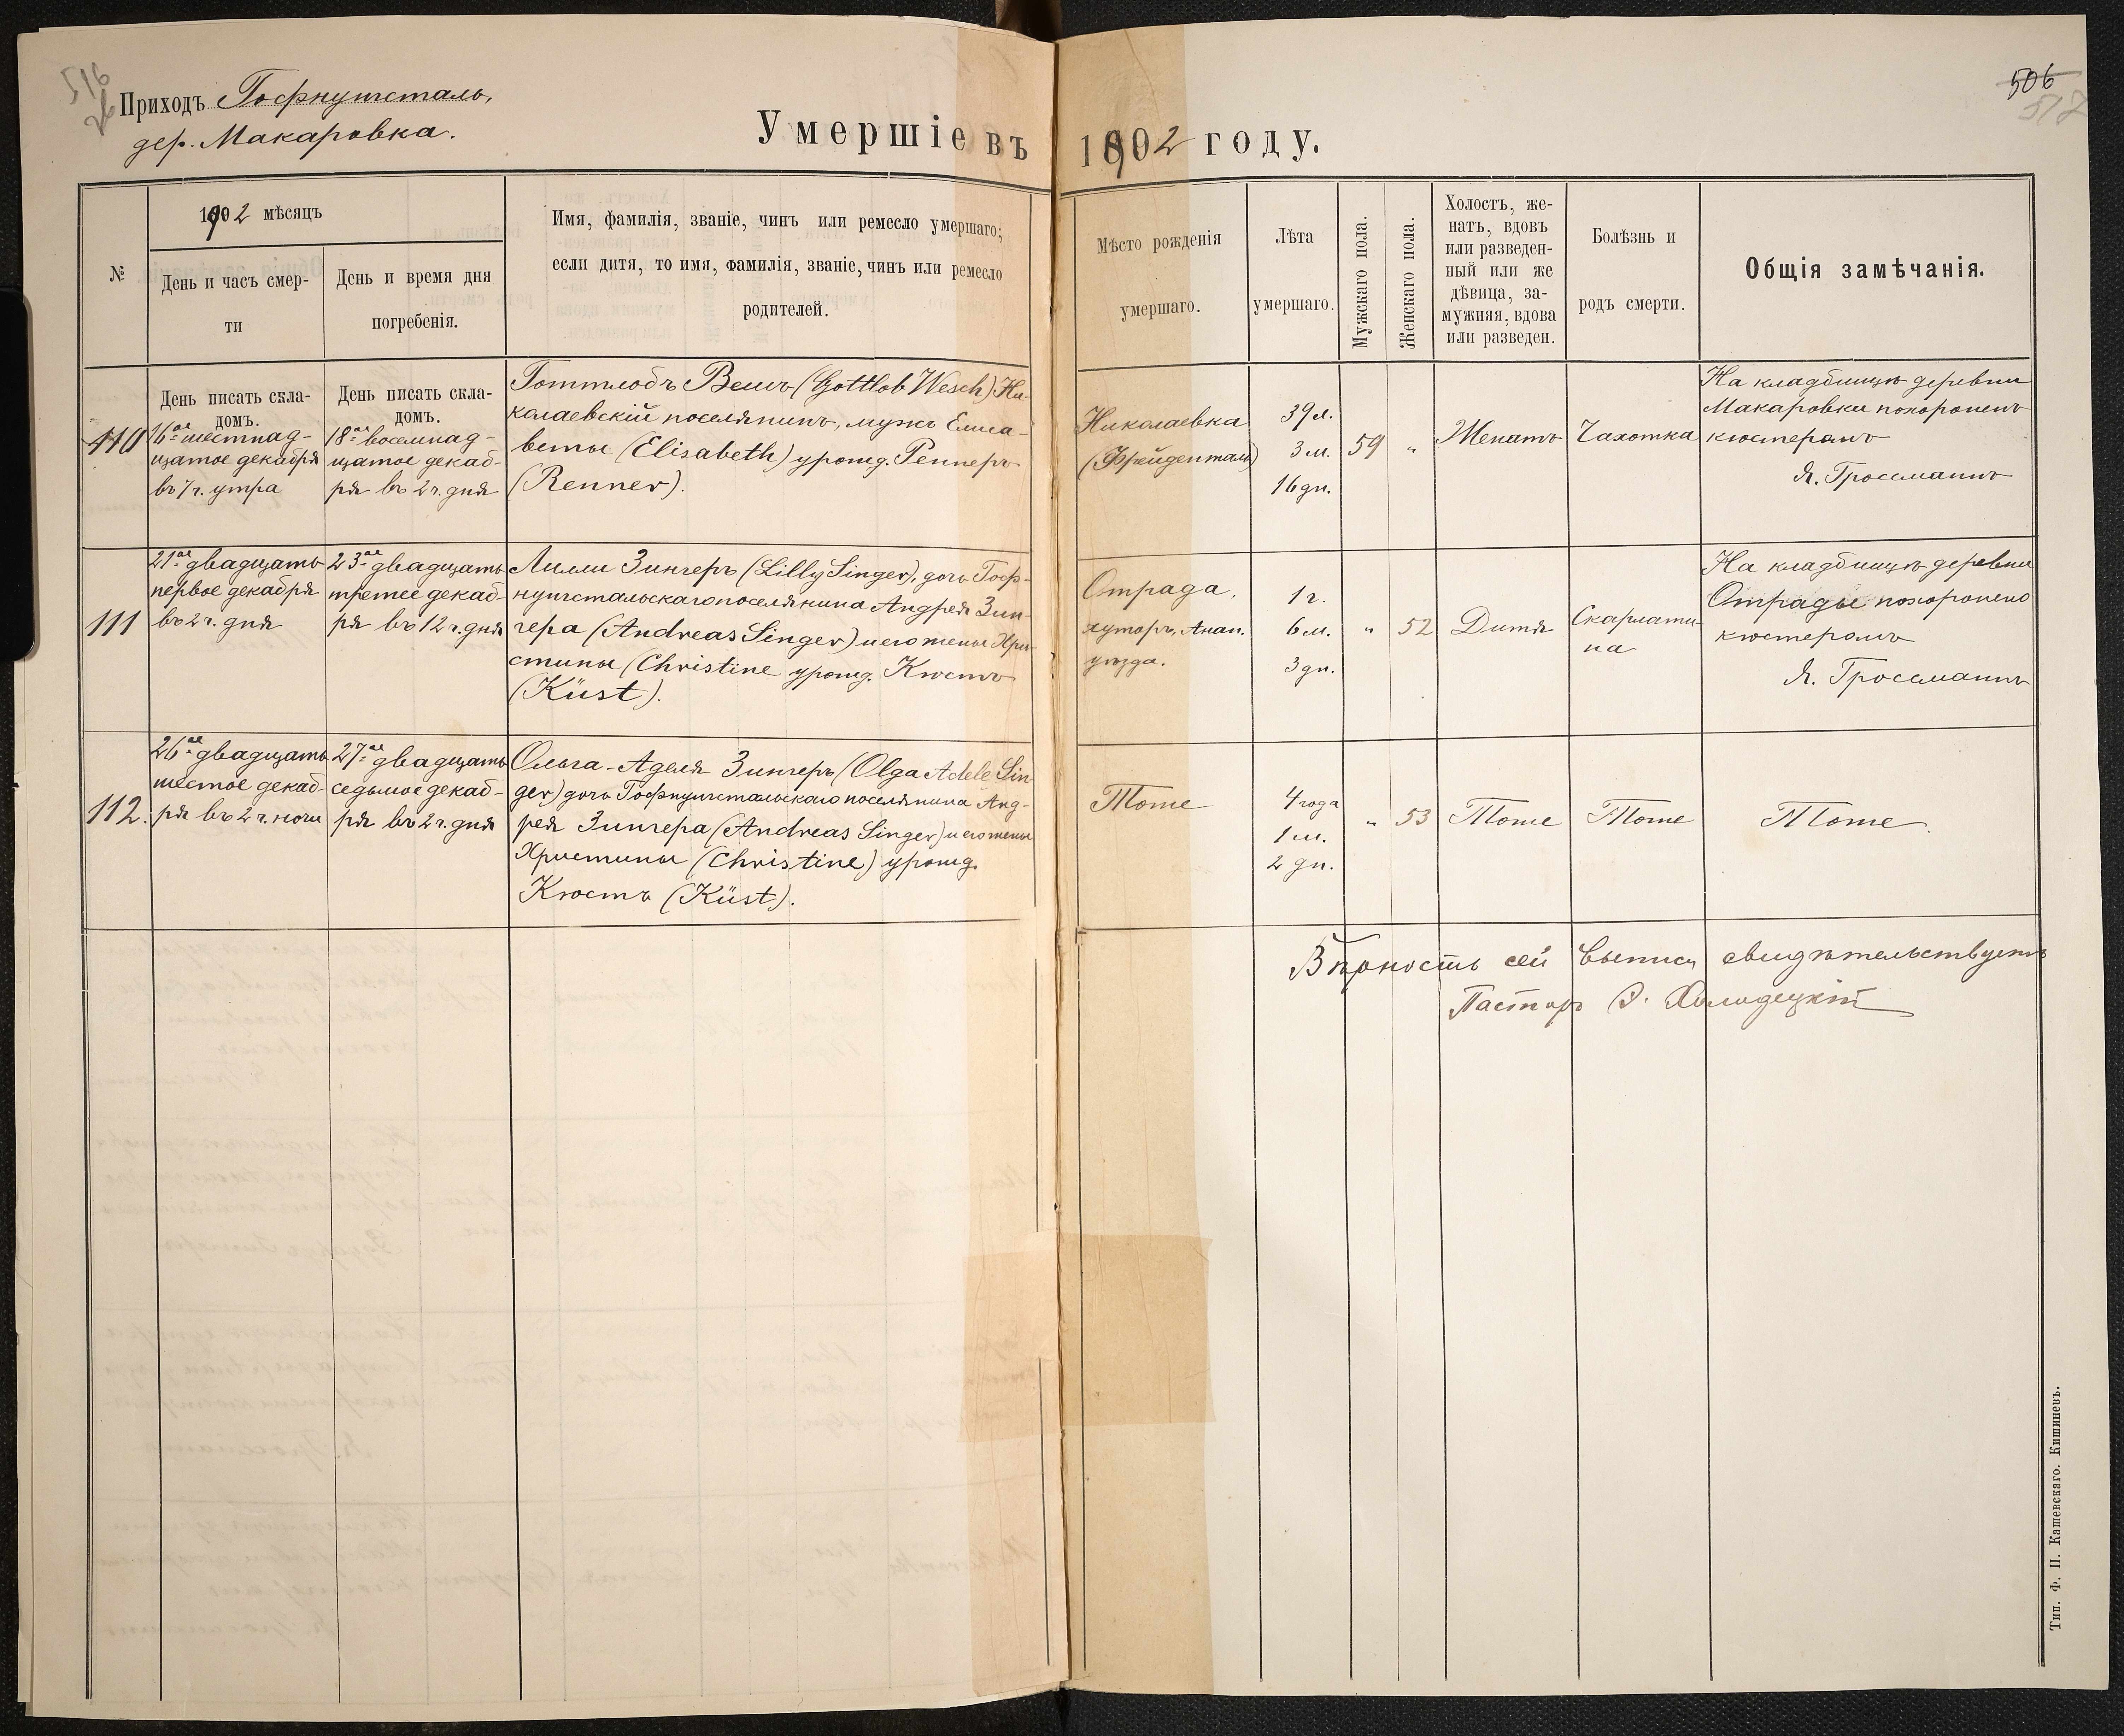 516
Приходъ Гофнунгсталь,
дер. Макаровка.
Умершіе въ 1902 году.
506
517
№
1902 мѣсяцъ
День и часъ смер-
ти
День и время дня
погребенія.
Имя, фамилія, званіе, чинъ или ремесло умершаго;
если дитя, то имя, фамилія, званіе, чинъ или ремесло
родителей.
Мѣсто рожденія
умершаго.
Лѣта
умершаго.
Мужскаго пола.
Женскаго пола.
Холостъ, же-
натъ, вдовъ
или разведен-
ный или же
дѣвица, за-
мужняя, вдова
или разведен.
Болѣзнь и
родъ смерти.
Общія замѣчанія.
110
День писать скла-
домъ.
16ое шестнад-
цатое декабря
въ 7 ч. утра
День писать скла-
домъ.
18ое восемнад-
цатое декаб-
ря въ 2 ч. дня
Готтлобъ Вешъ (Gottlob Wesch) Ни-
колаевскій поселянинъ, мужъ Елиса-
веты (Elisabeth) урожд. Реннеръ
(Renner).
Николаевка
(Фрейденталь)
39 л.
3 м.
16 дн.
59
"
Женатъ
Чахотка
На кладбищѣ деревни
Макаровки похороненъ
кюстеромъ
Я. Гроссманнъ
111
21ое двадцать
первое декабря
въ 2 ч. дня
23ое двадцать
третее декаб-
ря въ 12 ч. дня
Лилли Зингеръ (Lilly Singer), дочь Гоф-
нунгстальскаго поселянина Андрея Зин-
гера (Andreas Singer) и его жены Хри-
стины (Christine урожд. Кюстъ
(Küst).
Отрада,
хуторъ, Анан.
уѣзда.
1 г.
6 м.
3 дн.
"
52
Дитя
Скарлати-
на
На кладбищѣ деревни
Отрады похоронено
кюстеромъ
Я. Гроссманнъ
112.
26ое двадцать
шестое декаб-
ря въ 2 ч. ночи
27ое двадцать
седьмое декаб-
ря въ 2 ч. дня
Ольга-Аделя Зингеръ (Olga Adele Sin-
ger) дочь Гофнунгстальскаго поселянина Анд-
рея Зингера (Andreas Singer) и его жены
Христины (Christine) урожд.
Кюстъ (Küst).
Тоже
4 года
1 м.
2 дн.
"
53
Тоже
Тоже
Тоже.
Вѣрность сей выписи свидѣтельствуетъ
Пасторъ Э. Холодецкій
Тип. Ф. П. Кашевскаго. Кишиневъ.